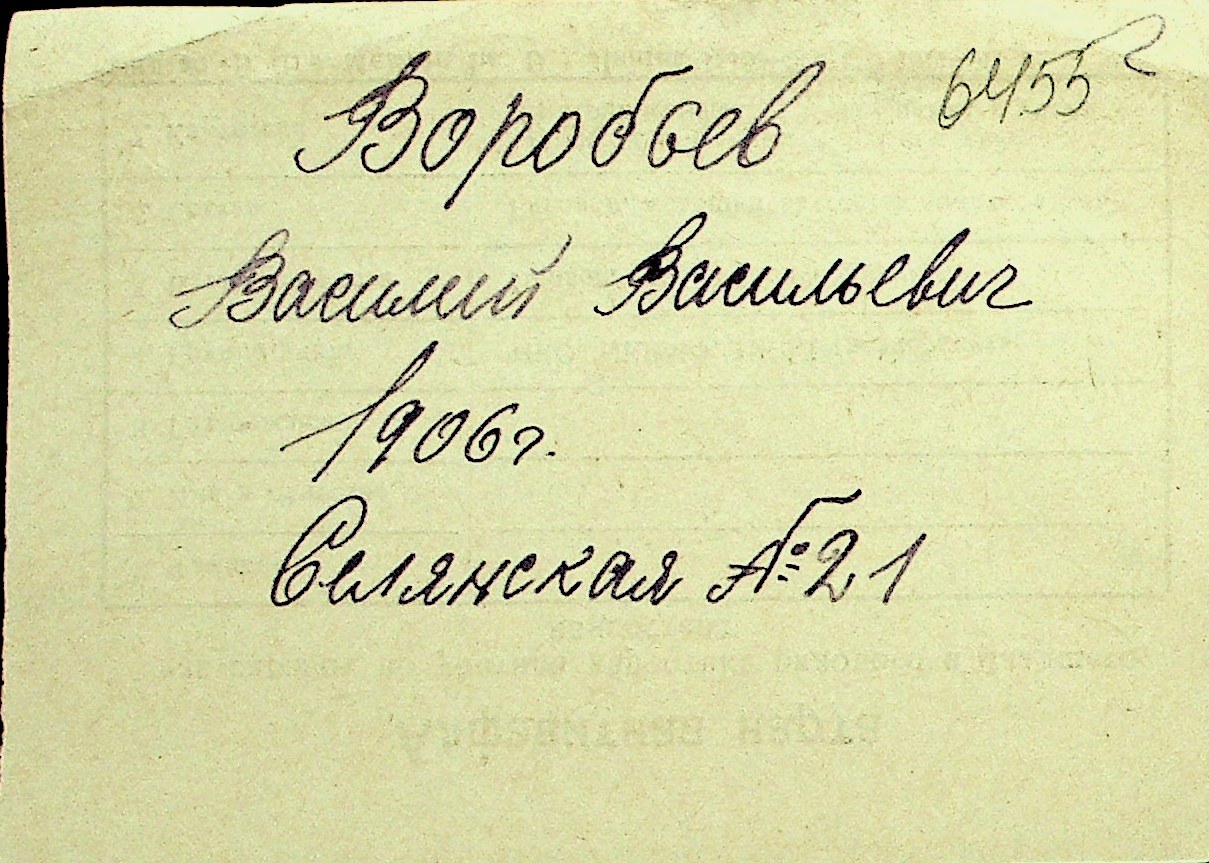 6455
Воробьев
Василий Васильевич
1906г.
Селянская №21